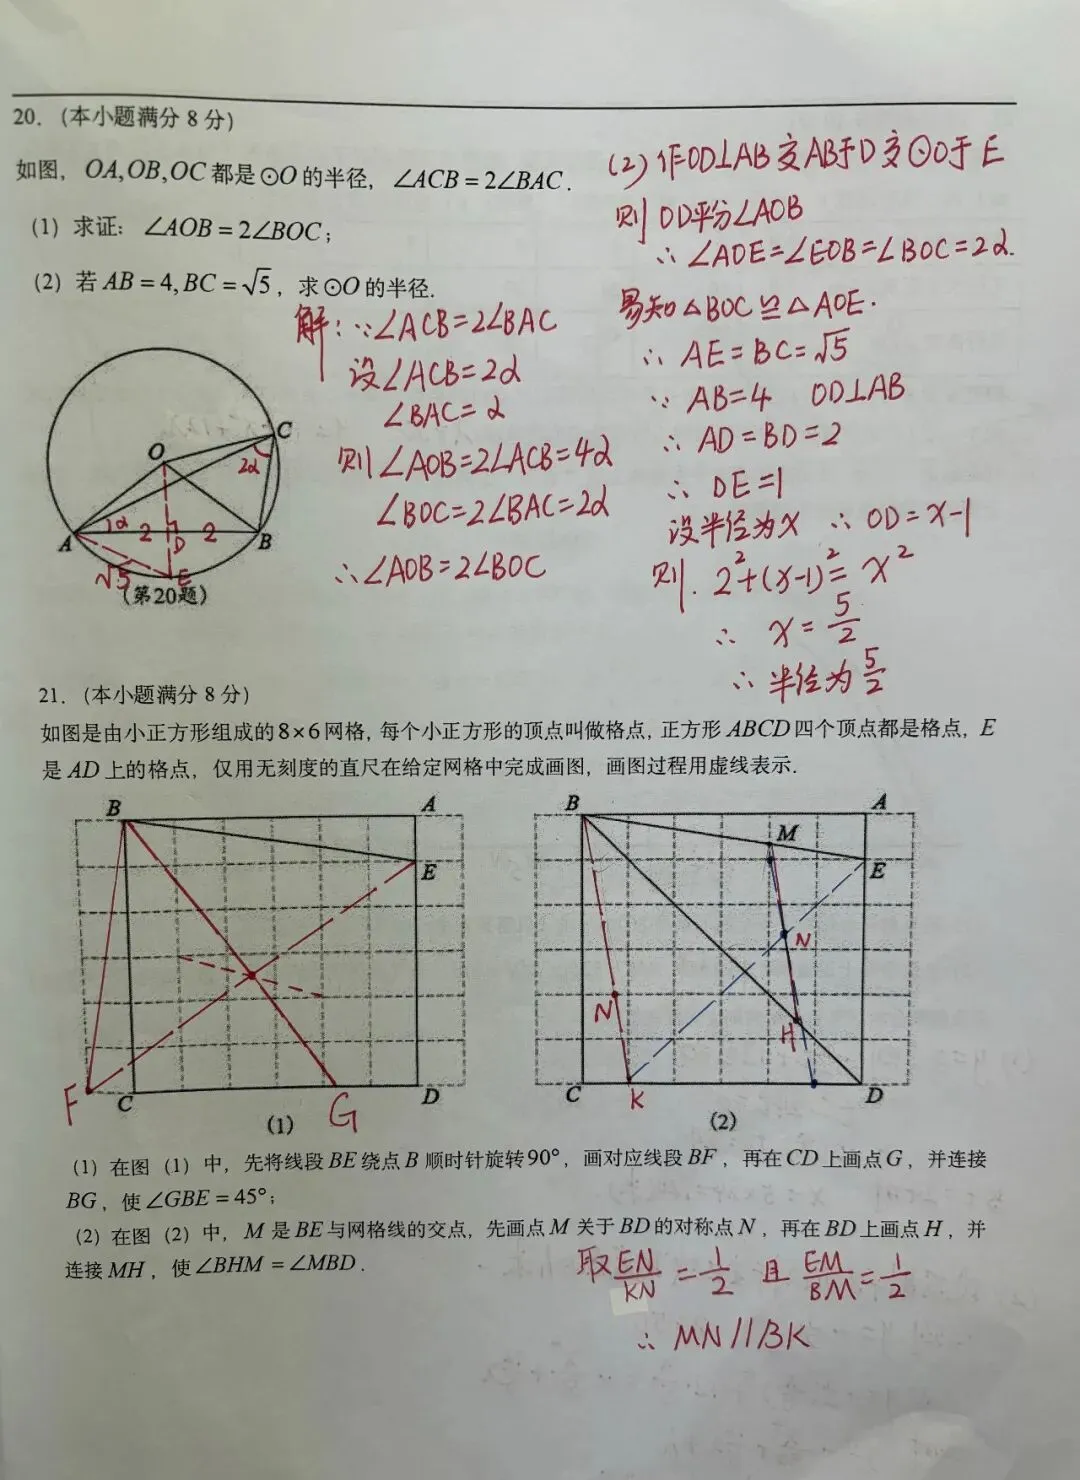 20.(本小题满分 8 分)
如图，OA,OB,OC 都是⊙O 的半径，∠ACB = 2∠BAC.
(1) 求证：∠AOB = 2∠BOC；
(2) 若 AB = 4, BC = √5，求⊙O 的半径.
解：∵∠ACB=2∠BAC
设∠ACB=2α
∠BAC=α
则∠AOB=2∠ACB=4α
∠BOC=2∠BAC=2α
∴∠AOB=2∠BOC
(2) 作OD⊥AB 交AB于D 交⊙O于 E
则 OD平分∠AOB
∴∠AOE=∠EOB=∠BOC=2α.
易知△BOC≌△AOE.
∴ AE=BC=√5
∵ AB=4 OD⊥AB
∴ AD=BD=2
∴ DE=1
设半径为x ∴ OD=x-1
则. 2²+(x-1)²=x²
∴ x=5/2
∴ 半径为5/2
O
C
2α
α
2
2
A
D
B
√5
E
(第20题)
21.(本小题满分 8 分)
如图是由小正方形组成的 8×6 网格，每个小正方形的顶点叫做格点，正方形 ABCD 四个顶点都是格点，E
是 AD 上的格点，仅用无刻度的直尺在给定网格中完成画图，画图过程用虚线表示.
B A
E
F C G D
(1)
B A
M
E
N
N
H
C K D
(2)
(1) 在图 (1) 中，先将线段 BE 绕点 B 顺时针旋转 90°，画对应线段 BF，再在 CD 上画点 G，并连接
BG，使 ∠GBE = 45°；
(2) 在图 (2) 中，M 是 BE 与网格线的交点，先画点 M 关于 BD 的对称点 N，再在 BD 上画点 H，并
连接 MH，使 ∠BHM = ∠MBD.
取 EN/KN = 1/2 且 EM/BM = 1/2
∴ MN//BK